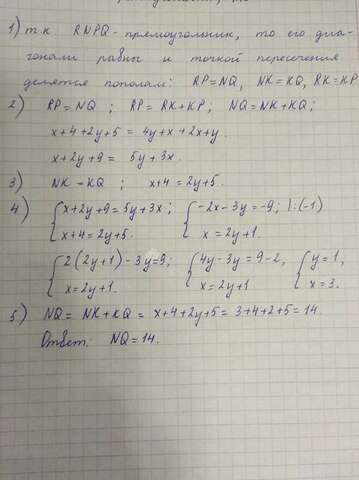 1) т.к. RNPQ - прямоугольник, то его диа-
гонали равны и точкой пересечения
делятся пополам: RP=NQ, NK=KQ, RK=KP
2) RP=NQ ; RP=RK+KP; NQ=NK+KQ;
x+4+2y+5 = 4y+x+2x+y.
x+2y+9 = 5y+3x.
3) NK-KQ ; x+4=2y+5.
4) {x+2y+9=5y+3x; {-2x-3y=-9; |:(-1)
x+4=2y+5. x=2y+1.
{2(2y+1)-3y=9; {4y-3y=9-2, {y=1,
x=2y+1. x=2y+1 x=3.
5) NQ= NK+KQ = x+4+2y+5= 3+4+2+5=14.
Ответ: NQ=14.